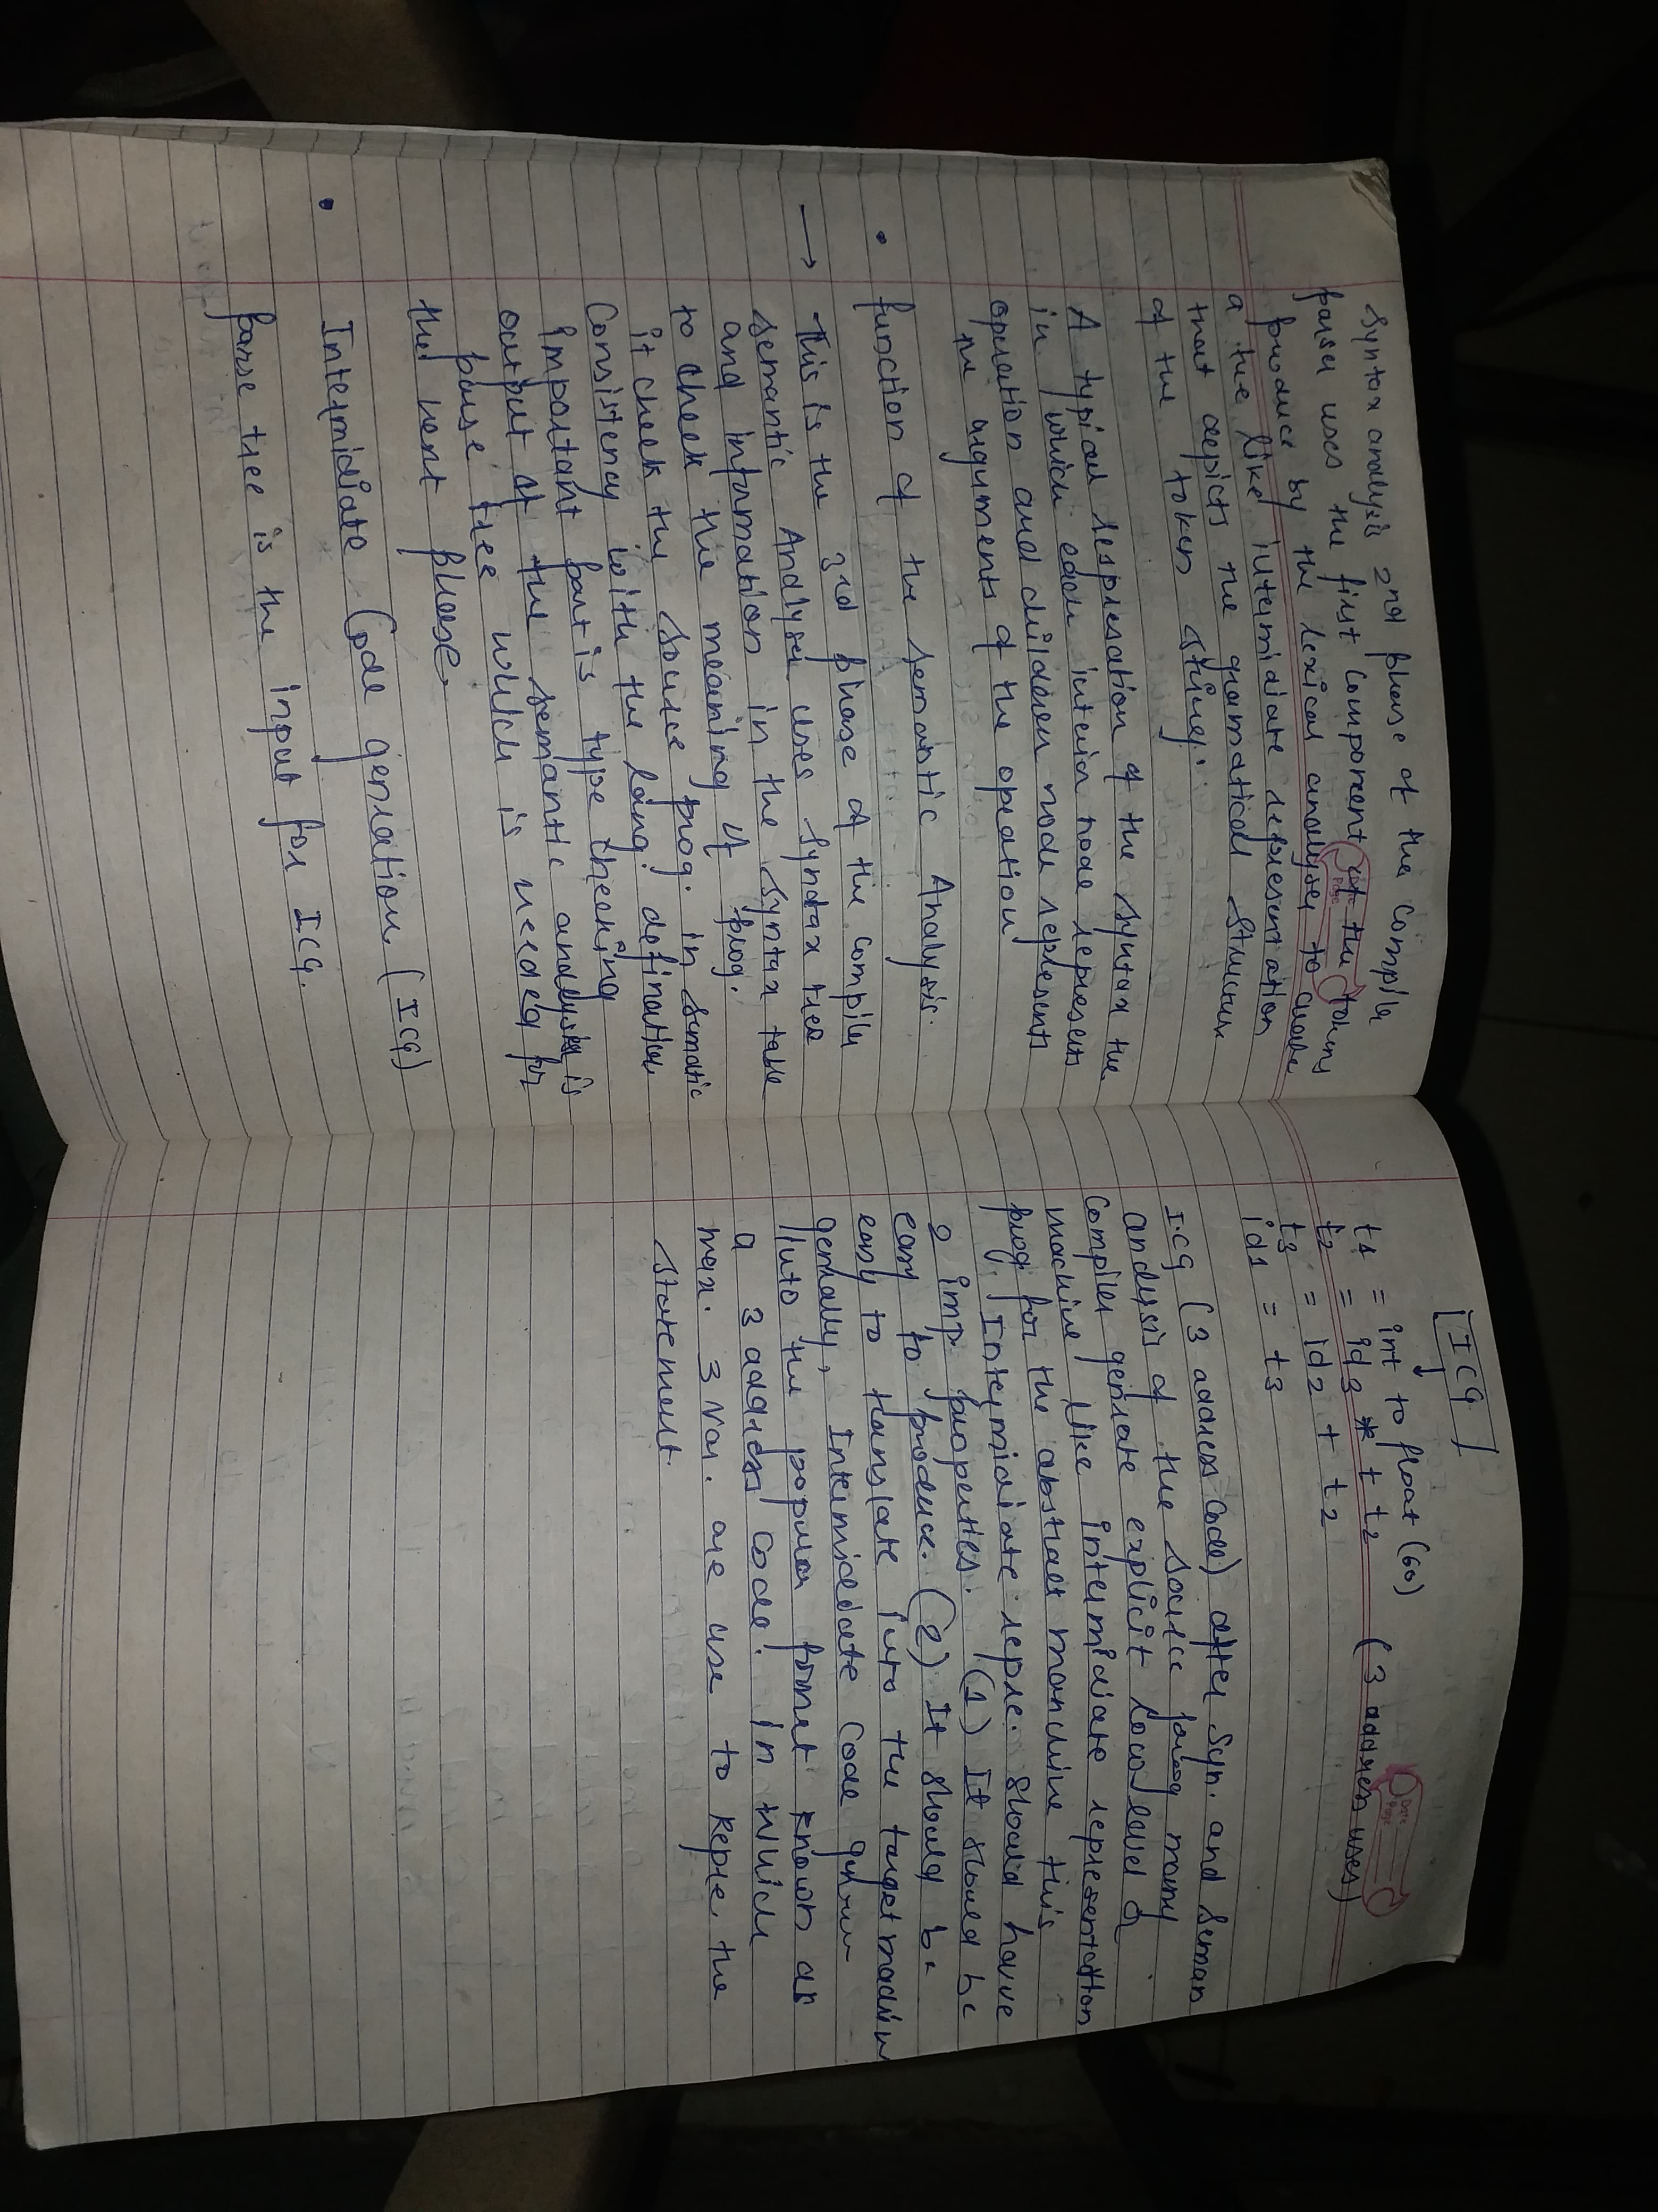 Syntax analysis 2nd phase of the compiler
parser uses the first component of the tokens
produce by the lexical analyser to create
a tree like intermidiate representation
that depicts the gramatical structure
of the token string.
A typical respresation of the syntax tree
in which each interior node represents
operation and childeren node represents
the arguments of the opeation
• function of the semantic Analysis.
→ This is the 3rd phase of the compiler
semantic Analyser uses Syndax tree
and information in the syntax table
to check the meaning of prog.
it check the source prog. in sematic
Consistency with the lang. defination
important part is type checking
output of the semantic analysis is
parse tree which is needed for
the next phase.
• Intermidiate Code genration (ICG)
parse tree is the input for ICG.
ICG
↓
t1 = int to float (60)
t2 = id3 * + t2 (3 address uses)
t3 = id2 + t2
id1 = t3
I.CG (3 address Code) after Syn. and Seman
analysis of the source prog many
Compiler genrate explicit low level or
machine like intermidiate representation
prog. for the abstract manchine this
Intermidiate repre. should have
2 imp. properties. (1) It should be
easy to produce. (2) It should be
easy to translate into the target machin
genrally, Intermidiate Code
into the popular format known as
a 3 address code. in which
max. 3 Var. are use to Repre. the
statement.